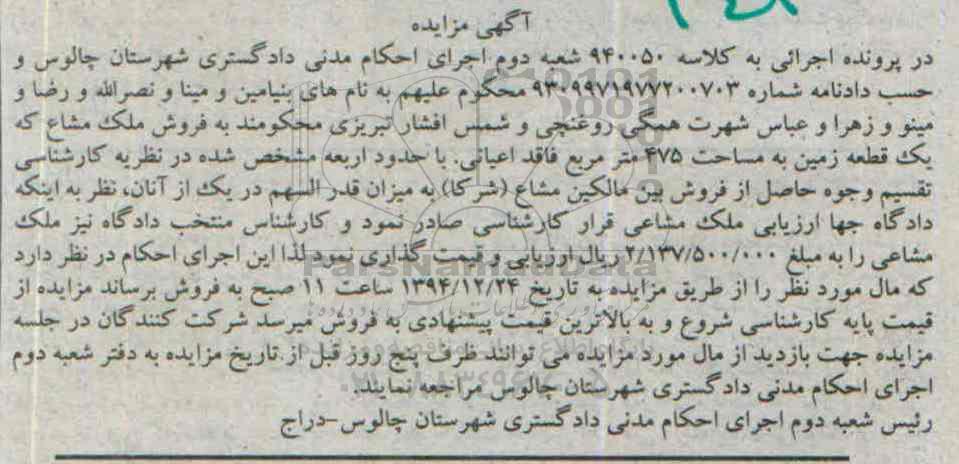 آگهی مزایده
در پرونده اجرائی به کلاسه ۹۴۰۰۵۰ شعبه دوم اجرای احکام مدنی دادگستری شهرستان چالوس و
حسب دادنامه شماره ۹۳۰۹۹۷۱۹۷۷۲۰۰۷۰۳ محکوم علیهم به نام های بنیامین و مینا و نصرالله و رضا و
مینو و زهرا و عباس شهرت همگی روغنچی و شمس افشار تبریزی محکومند به فروش ملک مشاع که
یک قطعه زمین به مساحت ۴۷۵ متر مربع فاقد اعیانی. با حدود اربعه مشخص شده در نظریه کارشناسی
تقسیم وجوه حاصل از فروش بین مالکین مشاع (شرکا) به میزان قدر السهم در یک از آنان، نظر به اینکه
دادگاه جها ارزیابی ملک مشاعی قرار کارشناسی صادر نمود و کارشناس منتخب دادگاه نیز ملک
مشاعی را به مبلغ ۲/۱۳۷/۵۰۰/۰۰۰ ریال ارزیابی و قیمت گذاری نمود لذا این اجرای احکام در نظر دارد
که مال مورد نظر را از طریق مزایده به تاریخ ۱۳۹۴/۱۲/۲۴ ساعت ۱۱ صبح به فروش برساند مزایده از
قیمت پایه کارشناسی شروع و به بالاترین قیمت پیشنهادی به فروش میرسد شرکت کنندگان در جلسه
مزایده جهت بازدید از مال مورد مزایده می توانند ظرف پنج روز قبل از تاریخ مزایده به دفتر شعبه دوم
اجرای احکام مدنی دادگستری شهرستان چالوس مراجعه نمایند.
رئیس شعبه دوم اجرای احکام مدنی دادگستری شهرستان چالوس-دراج
ParsNamadData